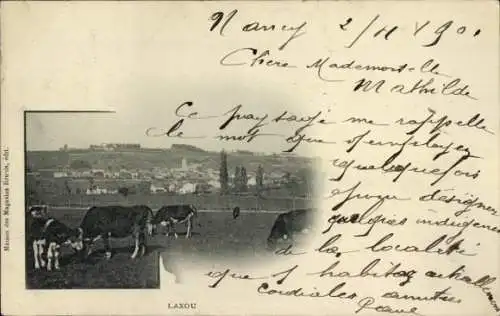 Nancy 2/11 1901
Chère Mademoiselle
Mathilde
Ce paysage me rappelle
le mot que t'employait
quelquefois
pour designer
quelques indigènes
de la localité
que j'habite actuellement
Cordiales amitiés
Maison des Magasins Réunis, édit.
LAXOU